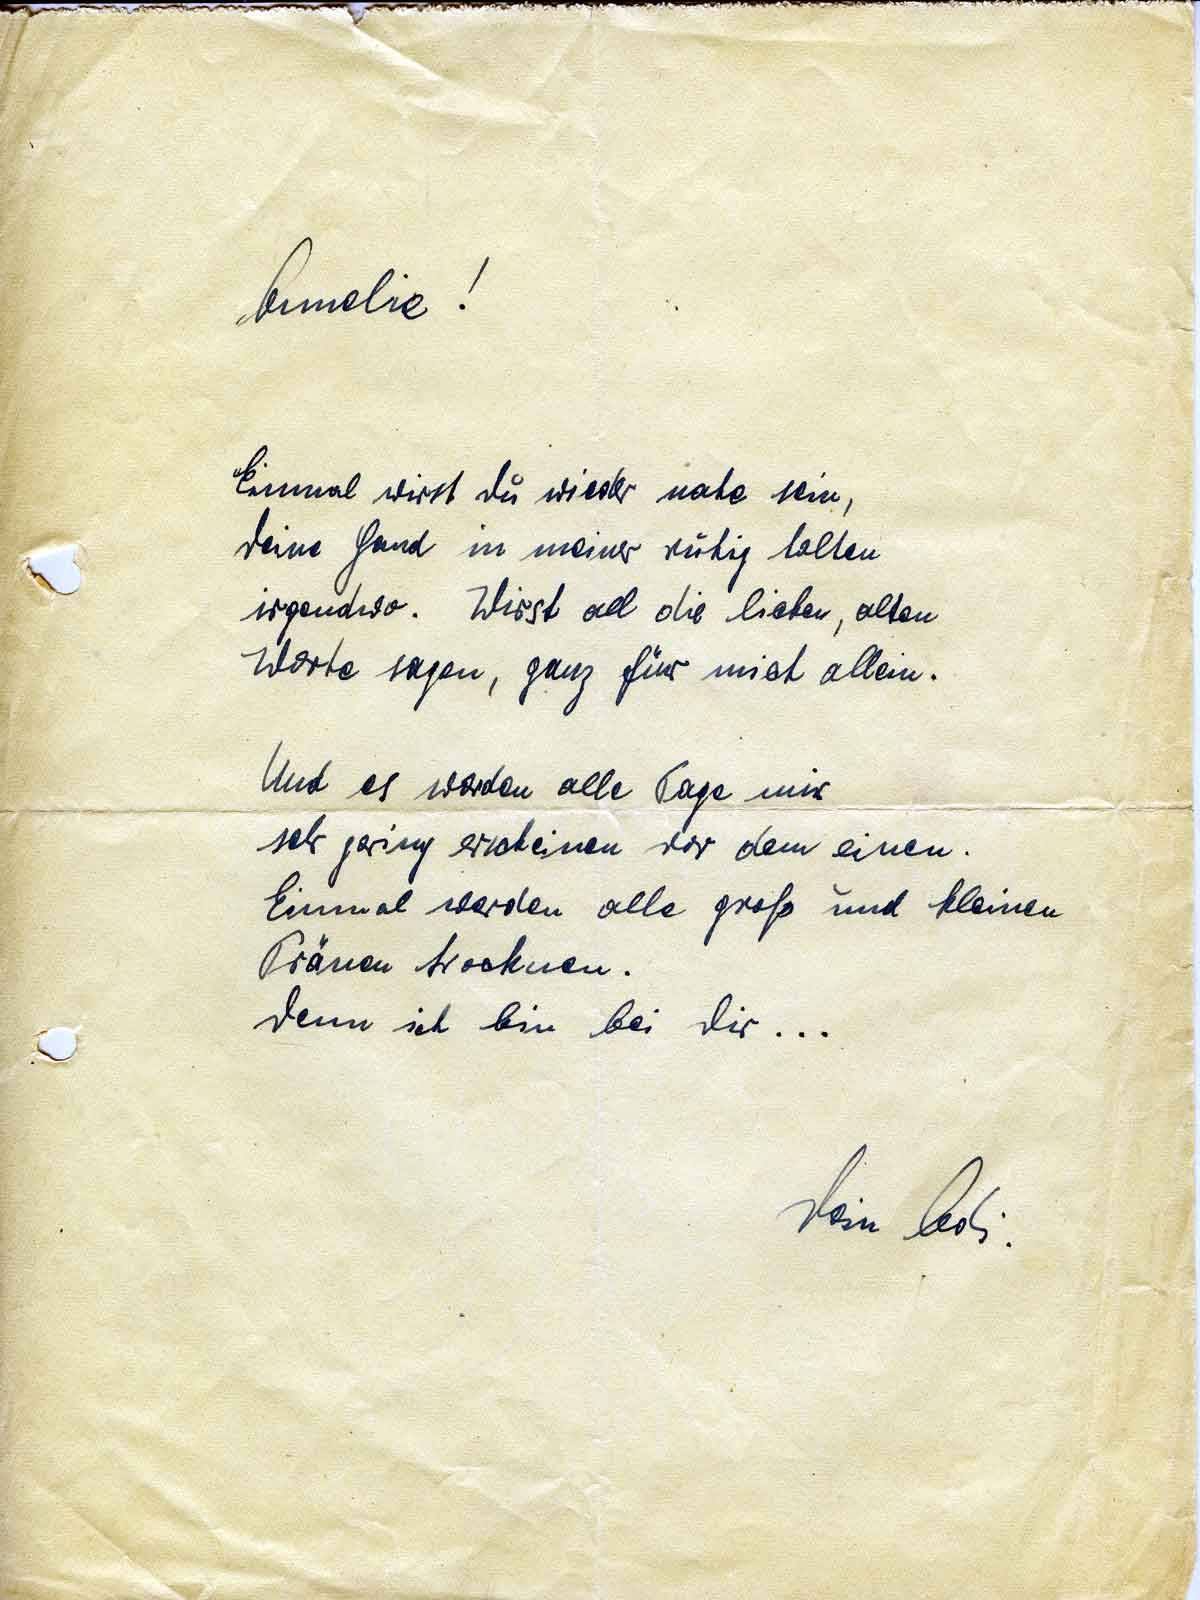 Annelie !
Einmal wirst Du wieder nahe sein,
Deine Hand in meiner ruhig halten
irgendwo. Wirst all die lieben, alten
Worte sagen, ganz für mich allein.
Und es werden alle Tage mir
sehr gering erscheinen vor dem einen.
Einmal werden alle groß und kleinen
Tränen trocknen.
Denn ich bin bei Dir...
Dein Adi.